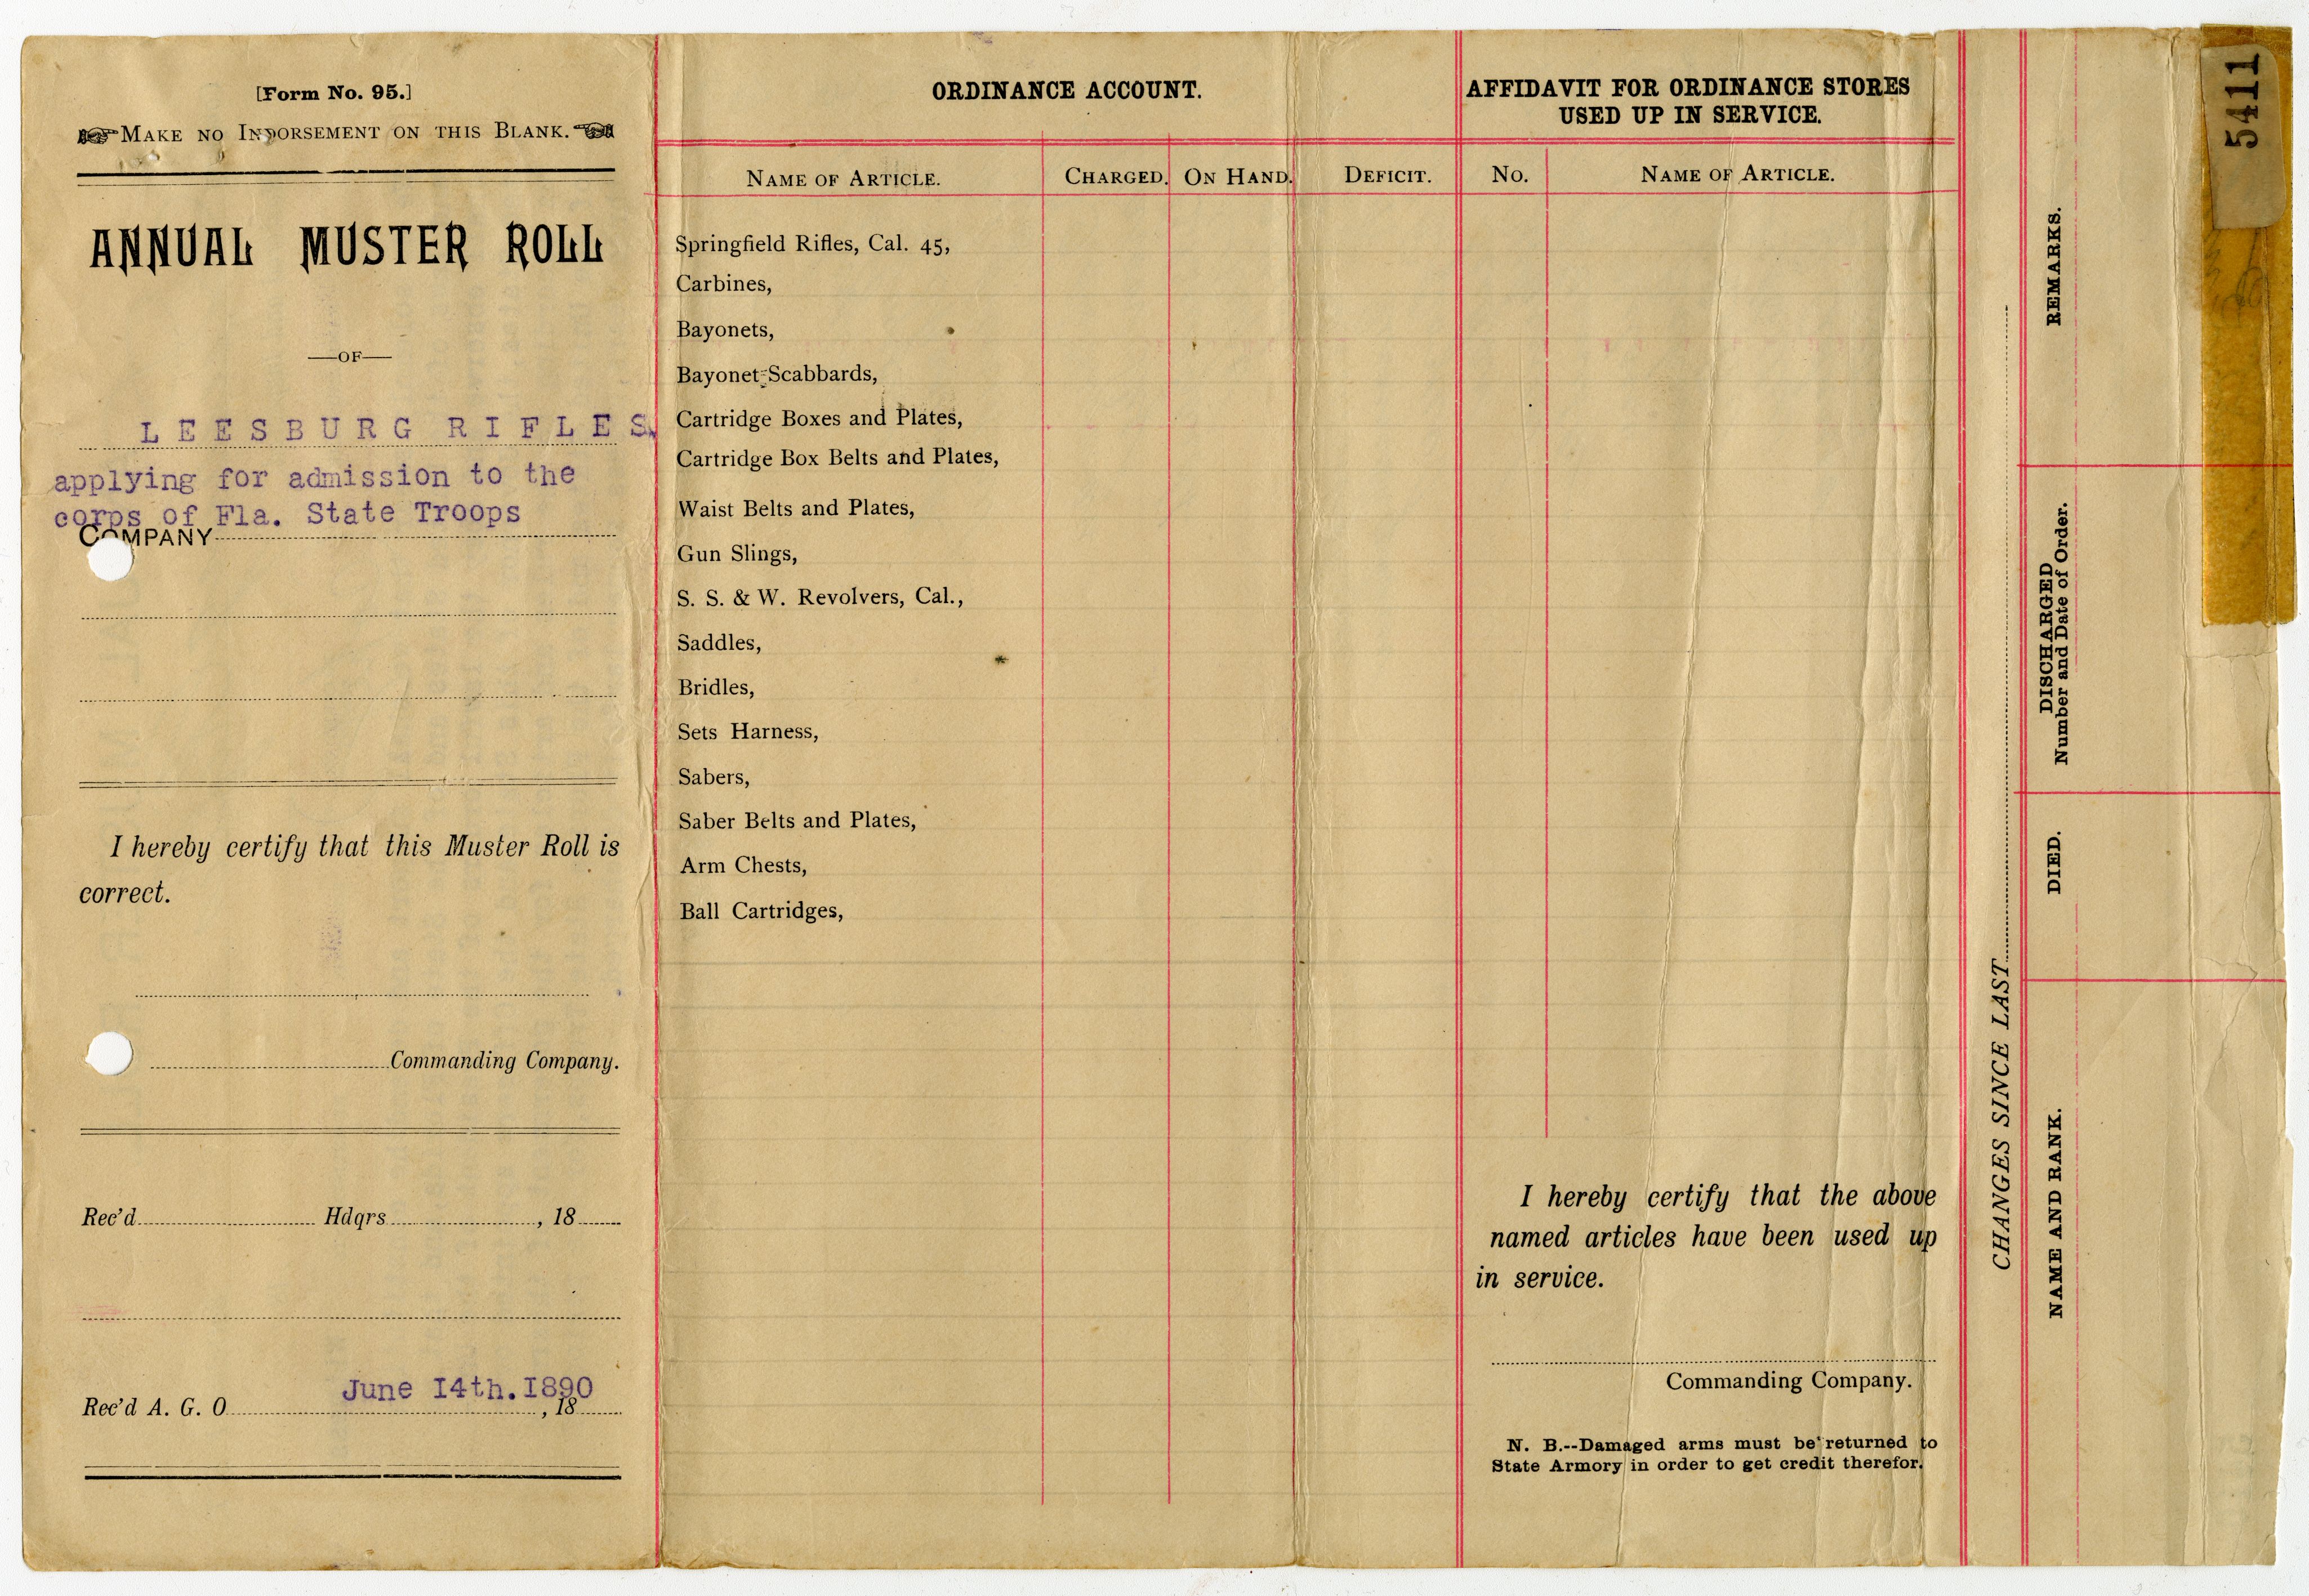 [Form No. 95.]
MAKE NO INDORSEMENT ON THIS BLANK.
ANNUAL MUSTER ROLL
—OF—
LEESBURG RIFLES.
applying for admission to the
corps of Fla. State Troops
COMPANY
I hereby certify that this Muster Roll is
correct.
Commanding Company.
Rec'd Hdqrs , 18
June I4th.I890
Rec'd A. G. O. , 18
ORDINANCE ACCOUNT.
NAME OF ARTICLE. CHARGED. ON HAND. DEFICIT.
Springfield Rifles, Cal. 45,
Carbines,
Bayonets,
Bayonet-Scabbards,
Cartridge Boxes and Plates,
Cartridge Box Belts and Plates,
Waist Belts and Plates,
Gun Slings,
S. S. & W. Revolvers, Cal.,
Saddles,
Bridles,
Sets Harness,
Sabers,
Saber Belts and Plates,
Arm Chests,
Ball Cartridges,
AFFIDAVIT FOR ORDINANCE STORES
USED UP IN SERVICE.
No. NAME OF ARTICLE.
I hereby certify that the above
named articles have been used up
in service.
Commanding Company.
N. B.--Damaged arms must be returned to
State Armory in order to get credit therefor.
CHANGES SINCE LAST
NAME AND RANK.
DIED.
DISCHARGED
Number and Date of Order.
REMARKS.
5411